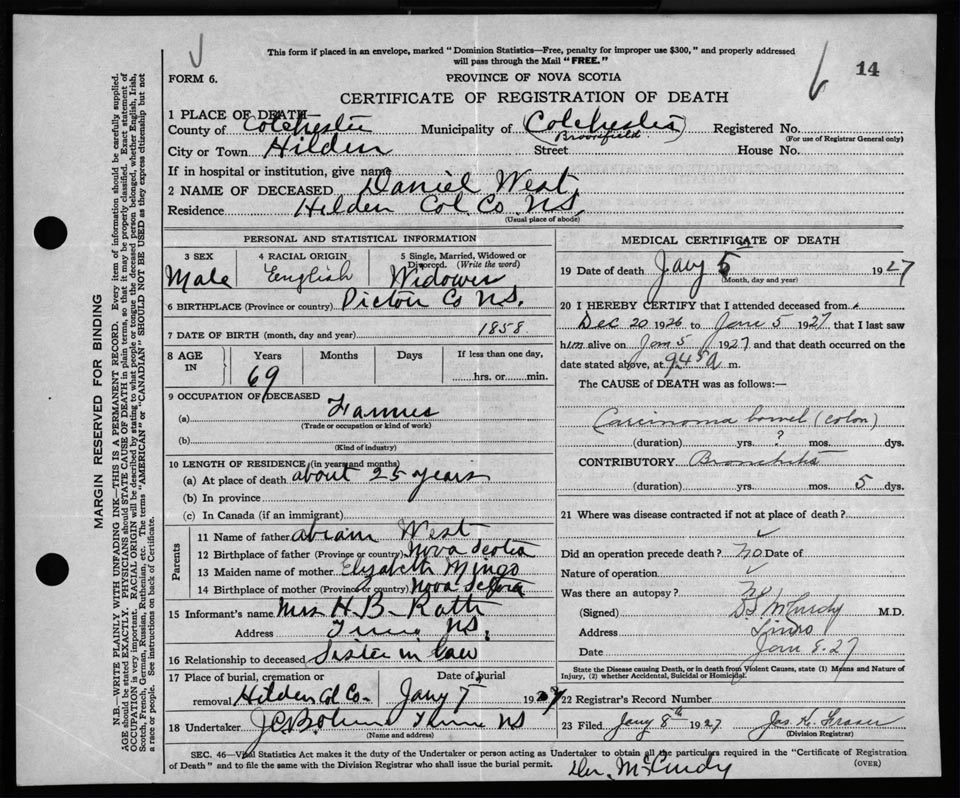 This form if placed in an envelope, marked "Dominion Statistics—Free, penalty for improper use $300," and properly addressed
will pass through the Mail "FREE."
FORM 6.
PROVINCE OF NOVA SCOTIA
14
CERTIFICATE OF REGISTRATION OF DEATH
1 PLACE OF DEATH
County of Colchester Municipality of (Colchester) Registered No.
Brookfield
(For use of Registrar General only)
City or Town Hilden Street House No.
If in hospital or institution, give name
2 NAME OF DECEASED Daniel West
Residence Hilden Col. Co. N.S.
(Usual place of abode)
PERSONAL AND STATISTICAL INFORMATION
3 SEX
Male
4 RACIAL ORIGIN
English
5 Single, Married, Widowed or
Divorced. (Write the word)
Widower
6 BIRTHPLACE (Province or country) Pictou Co N.S.
7 DATE OF BIRTH (month, day and year) 1858
8 AGE IN
Years Months Days If less than one day,
69 hrs. or min.
9 OCCUPATION OF DECEASED
(a) Farmer
(Trade or occupation or kind of work)
(b)
(Kind of industry)
10 LENGTH OF RESIDENCE (in years and months)
(a) At place of death about 25 years
(b) In province
(c) In Canada (if an immigrant)
Parents
11 Name of father Abram West
12 Birthplace of father (Province or country) Nova Scotia
13 Maiden name of mother Elyzabeth Mingo
14 Birthplace of mother (Province or country) Nova Scotia
15 Informant's name Mrs H. B.
Address Truro N.S.
16 Relationship to deceased Sister in law
17 Place of burial, cremation or Date of burial
removal Hilden Col Co. Jany 7 1927
18 Undertaker Truro NS
(Name and address)
MEDICAL CERTIFICATE OF DEATH
19 Date of death Jany 5 1927
(Month, day and year)
20 I HEREBY CERTIFY that I attended deceased from
Dec 20 1926 to Jan 5 1927 that I last saw
him alive on Jan 5 1927 and that death occurred on the
date stated above, at 9 45 a m.
The CAUSE of DEATH was as follows:—
Carcinoma bowel (colon)
(duration) yrs. ? mos. dys.
CONTRIBUTORY Bronchitis
(duration) yrs. mos. 5 dys.
21 Where was disease contracted if not at place of death?
Did an operation precede death? No Date of
Nature of operation
Was there an autopsy? N
(Signed) D.S. McCurdy M.D.
Address Truro
Date Jan 5-27
State the Disease causing Death, or in death from Violent Causes, state (1) Means and Nature of
Injury, (2) whether Accidental, Suicidal or Homicidal.
22 Registrar's Record Number
23 Filed Jany 8th 1927 Jas. K. Fraser
(Division Registrar)
SEC. 46—Vital Statistics Act makes it the duty of the Undertaker or person acting as Undertaker to obtain all the particulars required in the "Certificate of Registration
of Death" and to file the same with the Division Registrar who shall issue the burial permit.
(OVER)
Dr. McCurdy
MARGIN RESERVED FOR BINDING
N.B.—WRITE PLAINLY WITH UNFADING INK—THIS IS A PERMANENT RECORD. Every item of information should be carefully supplied.
AGE should be stated EXACTLY. PHYSICIANS should STATE CAUSE OF DEATH in plain terms, so that it may be properly classified. Exact statement of
OCCUPATION is very important. RACIAL ORIGIN will be described by stating to what people or tongue the deceased person belonged, whether English, Irish,
Scotch, French, German, Russian, Ruthenian, etc. The terms "AMERICAN" or "CANADIAN" SHOULD NOT BE USED as they express citizenship but not
a race or people. See instructions on back of Certificate.